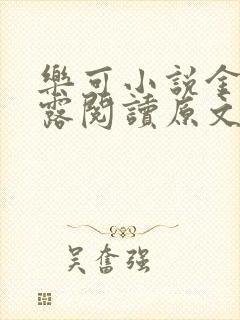 樂可小說金
露閱讀原文
吴奮强